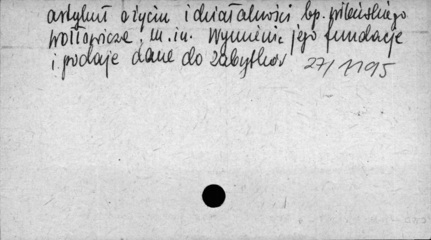 artykuł o życiu i działalności bp. wileńskiego
Wołłowicza m.in. Wymienia jego fundacje
i podaje dane do zabytków 27/1195